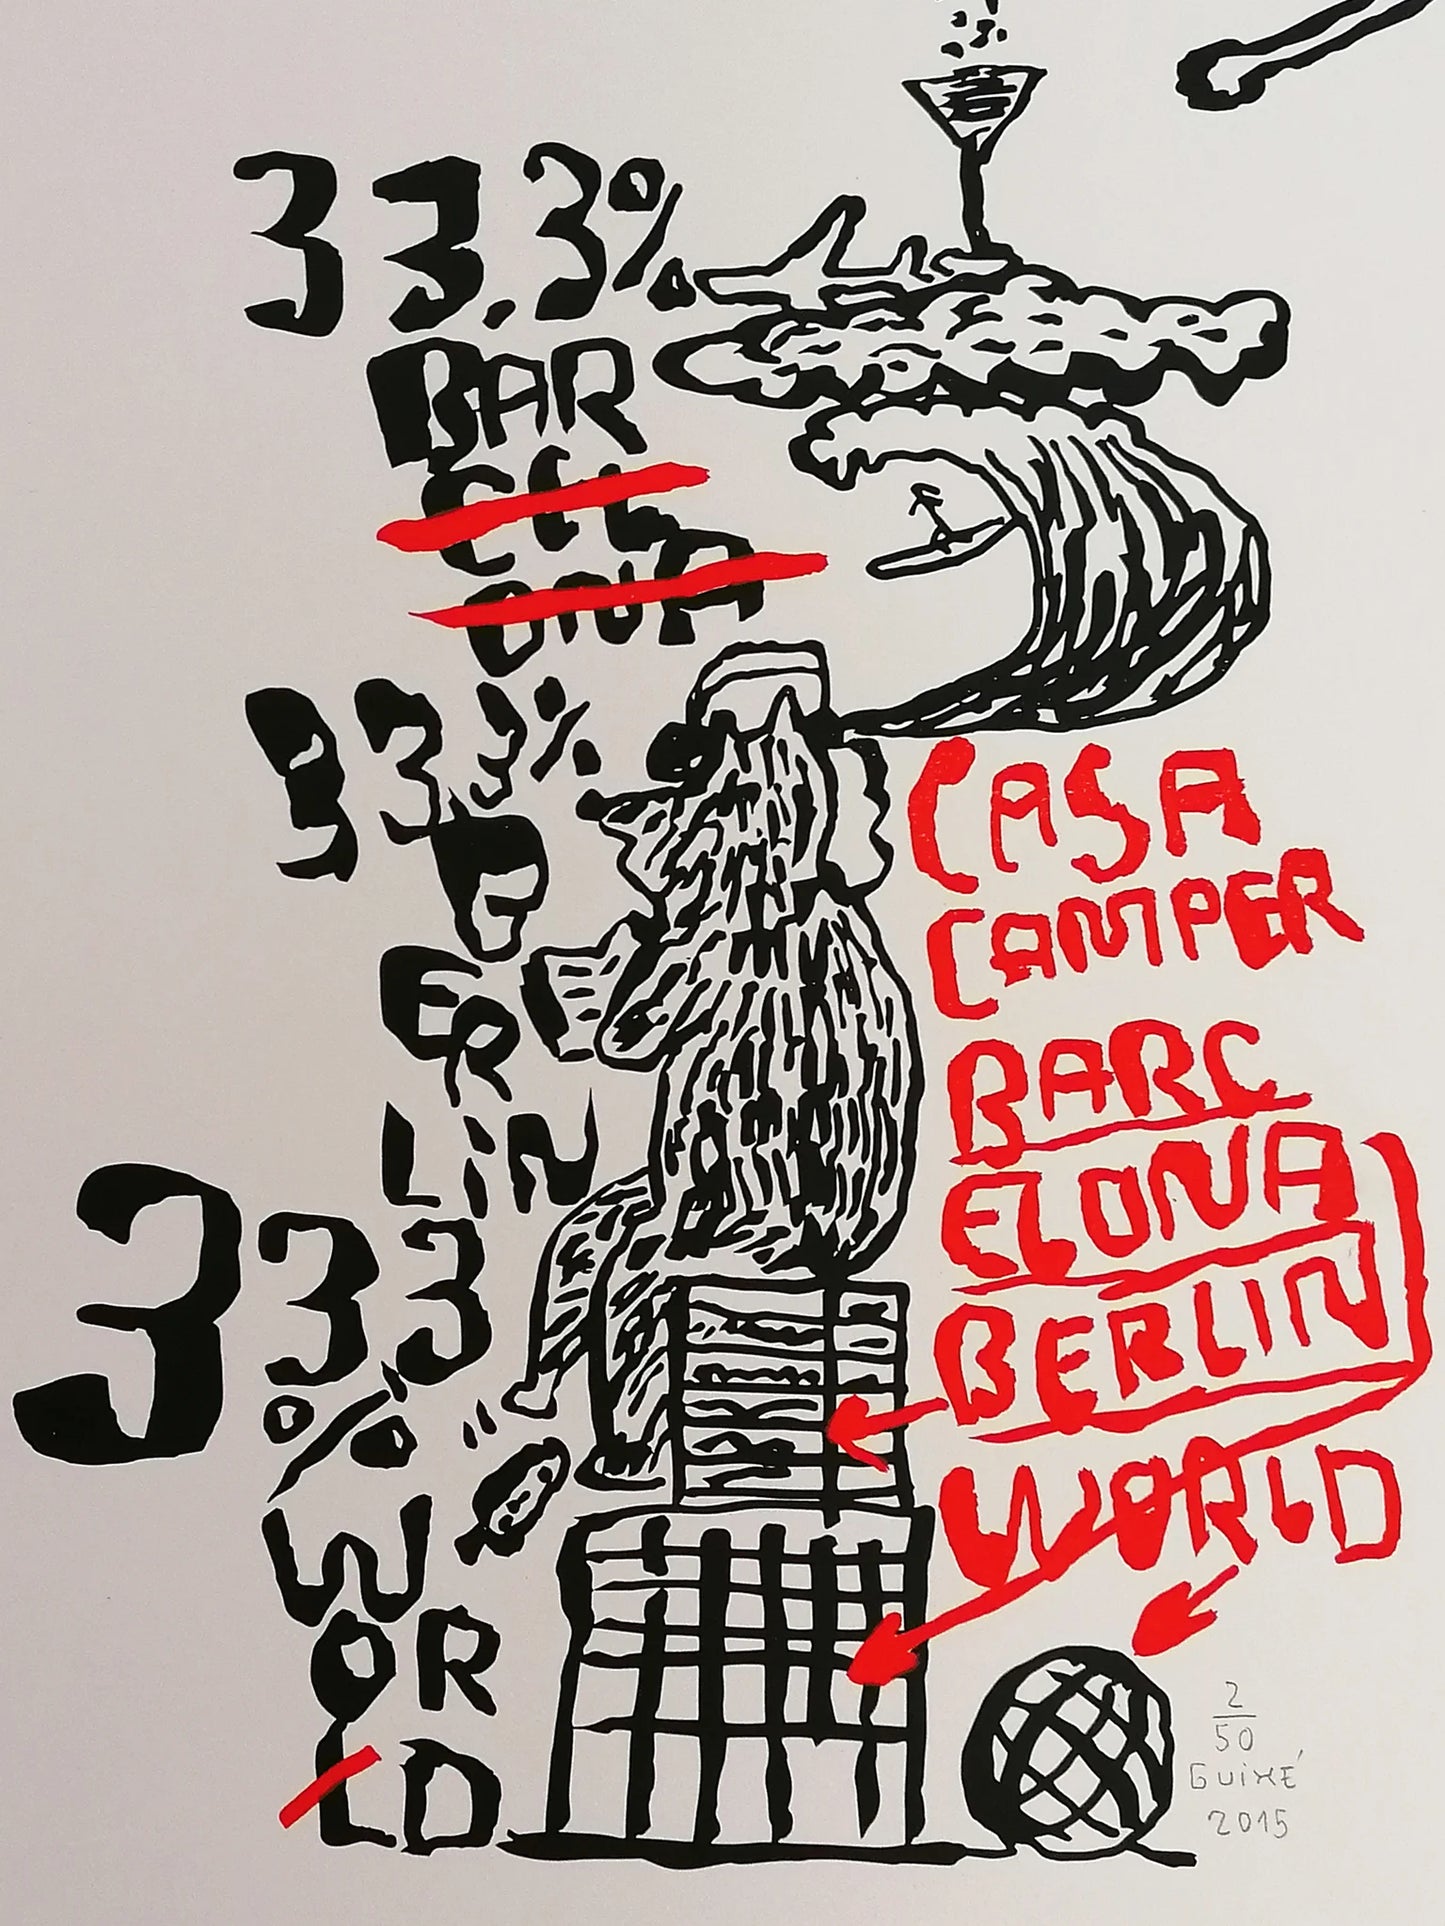 33.3%
BAR
CEL
ONA
333%
B
ER
LiN
333
%
W
OR
LD
CASA
CAMPER
BARC
ELONA
BERLIN
WORLD
2
50
GUiXÉ
2015